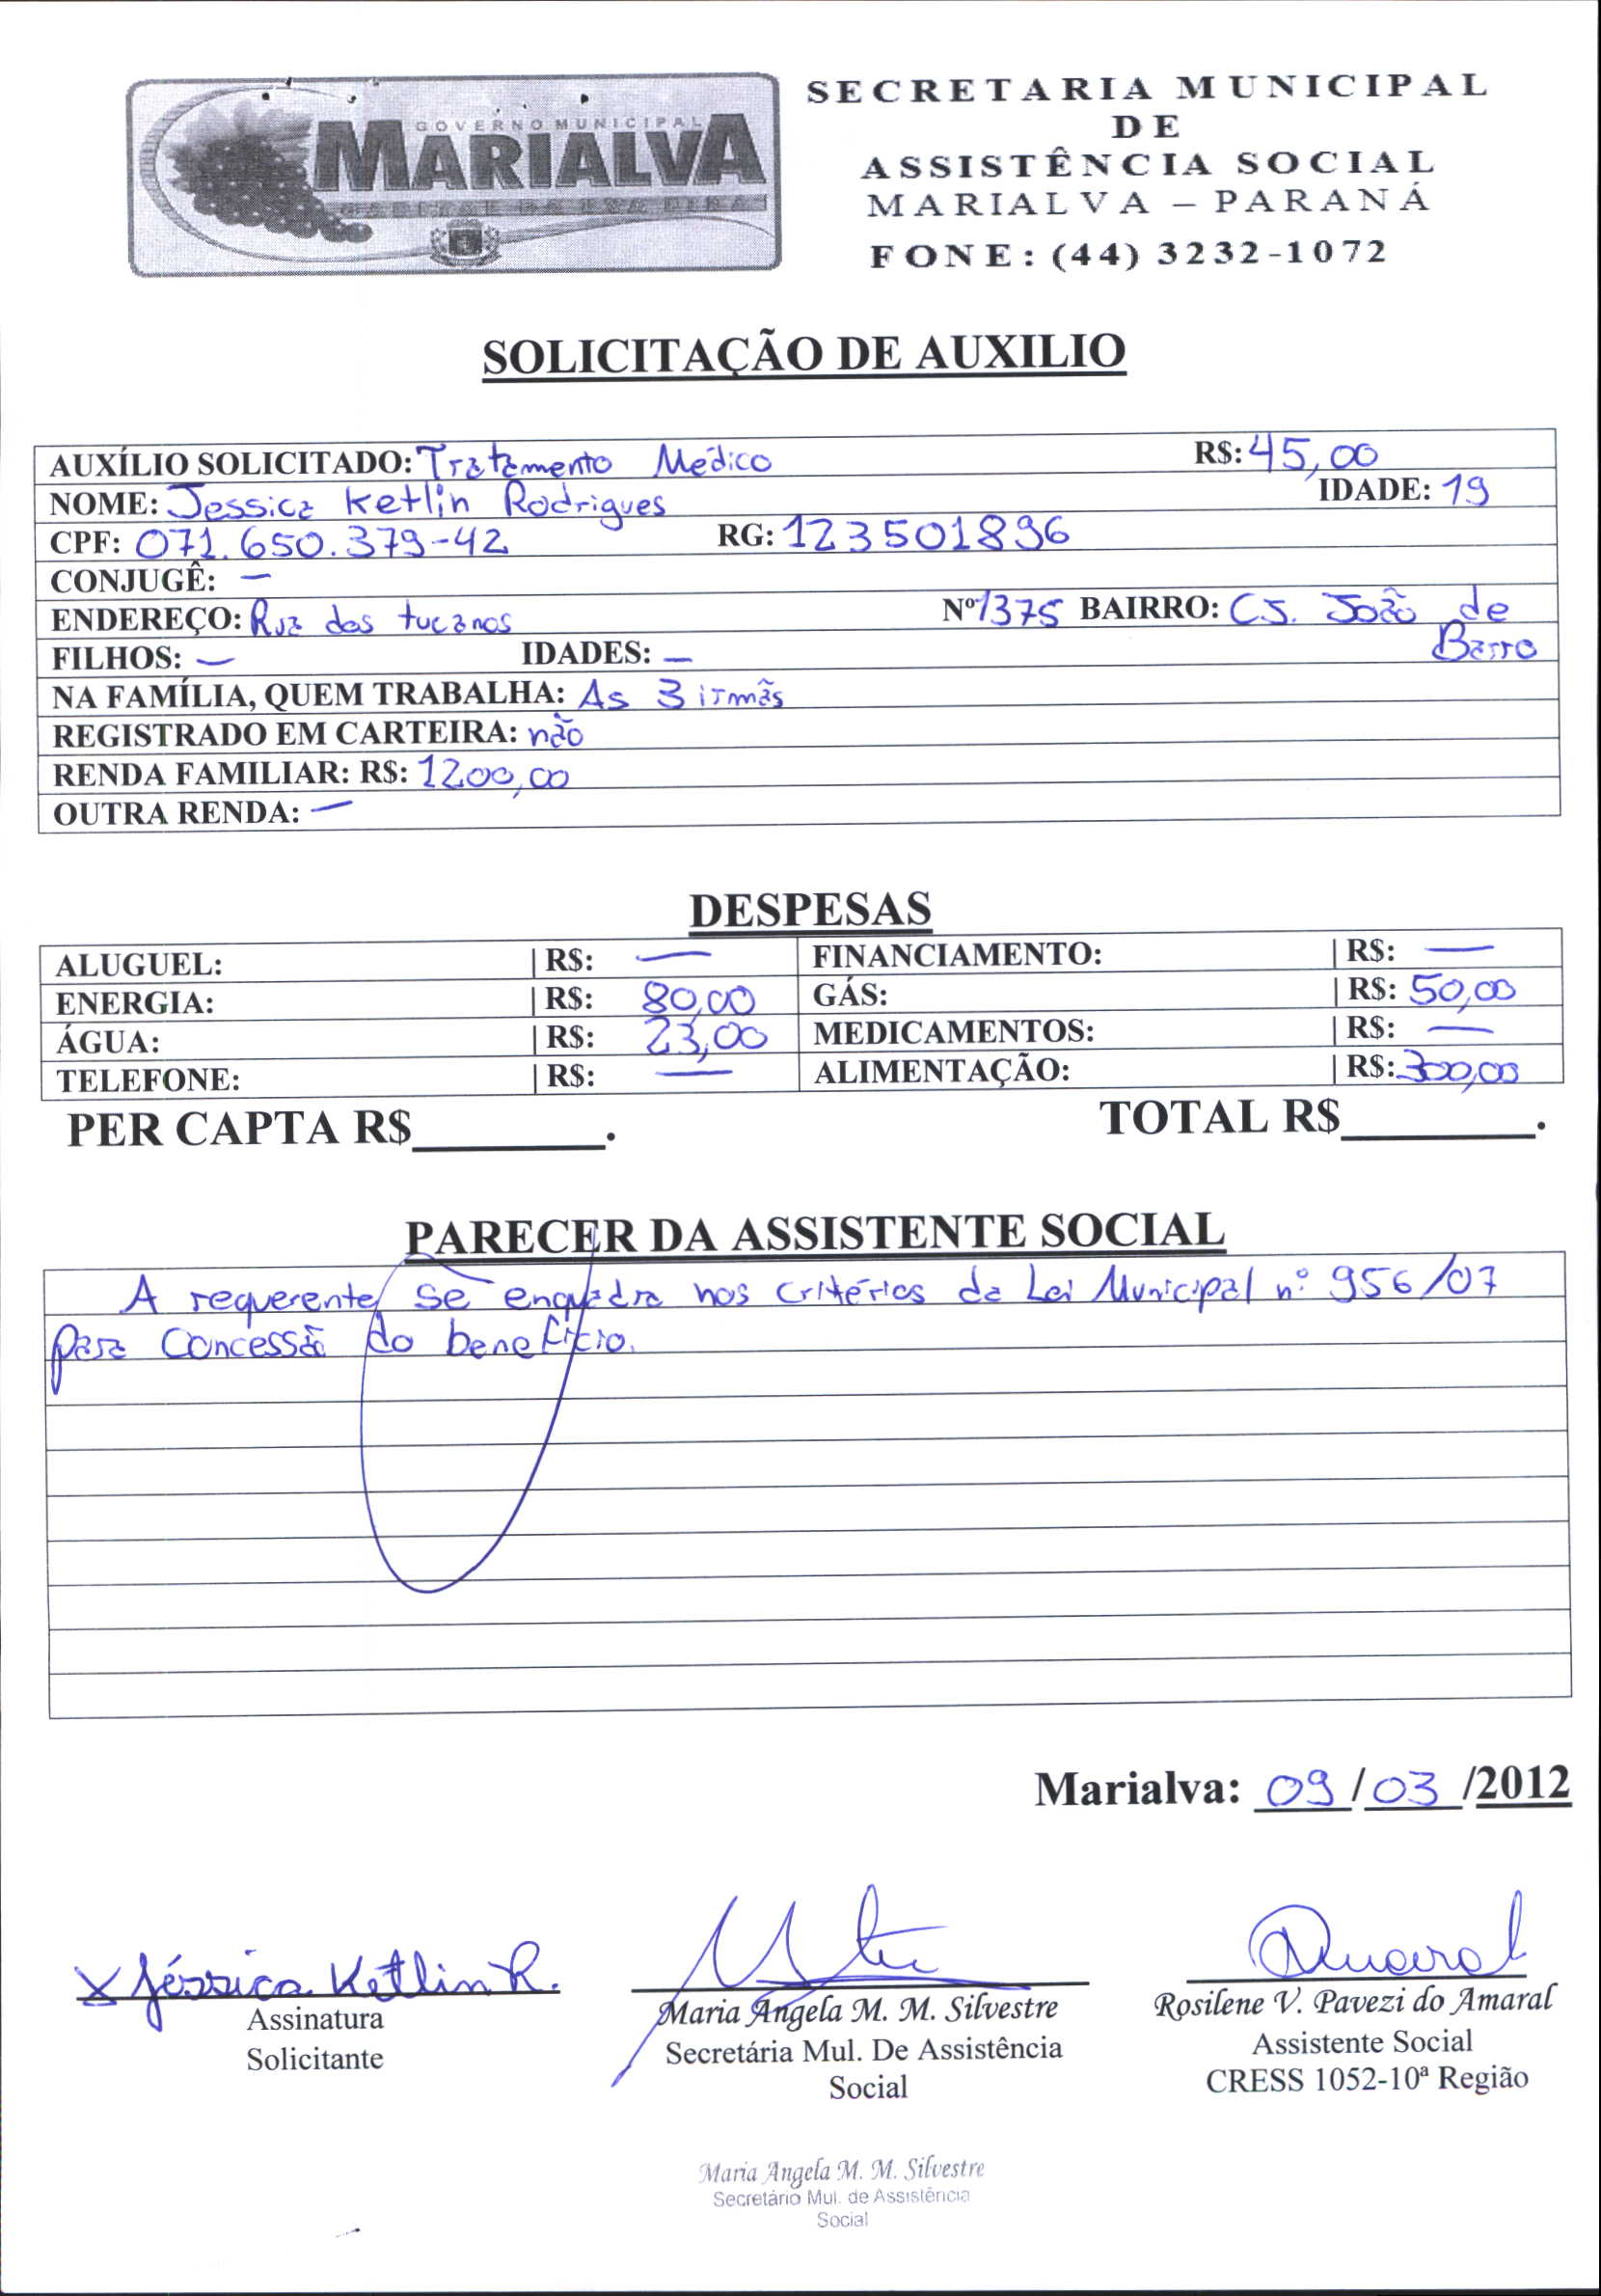 GOVERNO MUNICIPAL
MARIALVA
SECRETARIA MUNICIPAL
DE
ASSISTÊNCIA SOCIAL
MARIALVA – PARANÁ
FONE: (44) 3232-1072
SOLICITAÇÃO DE AUXILIO
AUXÍLIO SOLICITADO: Tratamento Médico R$: 45,00
NOME: Jessica Ketlin Rodrigues IDADE: 19
CPF: 071.650.379-42 RG: 123501896
CONJUGÊ: —
ENDEREÇO: Rua dos tucanos Nº 1375 BAIRRO: CJ. João de
Barro
FILHOS: — IDADES: —
NA FAMÍLIA, QUEM TRABALHA: As 3 irmãs
REGISTRADO EM CARTEIRA: não
RENDA FAMILIAR: R$: 1200,00
OUTRA RENDA: —
DESPESAS
ALUGUEL: | R$: — FINANCIAMENTO: | R$: —
ENERGIA: | R$: 80,00 GÁS: | R$: 50,00
ÁGUA: | R$: 23,00 MEDICAMENTOS: | R$: —
TELEFONE: | R$: — ALIMENTAÇÃO: | R$: 300,00
PER CAPTA R$________. TOTAL R$________.
PARECER DA ASSISTENTE SOCIAL
A requerente se enquadra nos critérios da Lei Municipal nº 956/07
para concessão do benefício.
Marialva: 09/03/2012
X Jéssica Ketlin R.
Assinatura
Solicitante
Maria Angela M. M. Silvestre
Secretária Mul. De Assistência
Social
Amaral
Rosilene V. Pavezi do Amaral
Assistente Social
CRESS 1052-10ª Região
Maria Angela M. M. Silvestre
Secretário Mul. de Assistência
Social